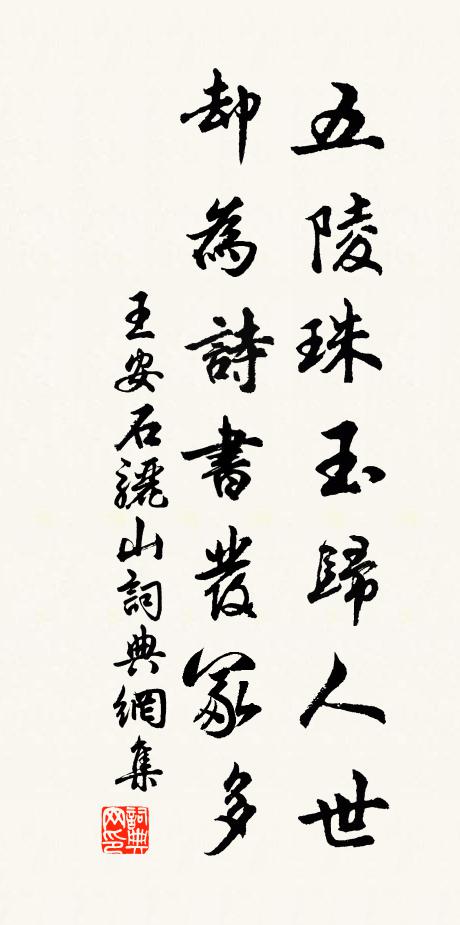 五陵珠玉歸人世
却為詩書發冢多
王安石驪山詞典網集
詞典网印